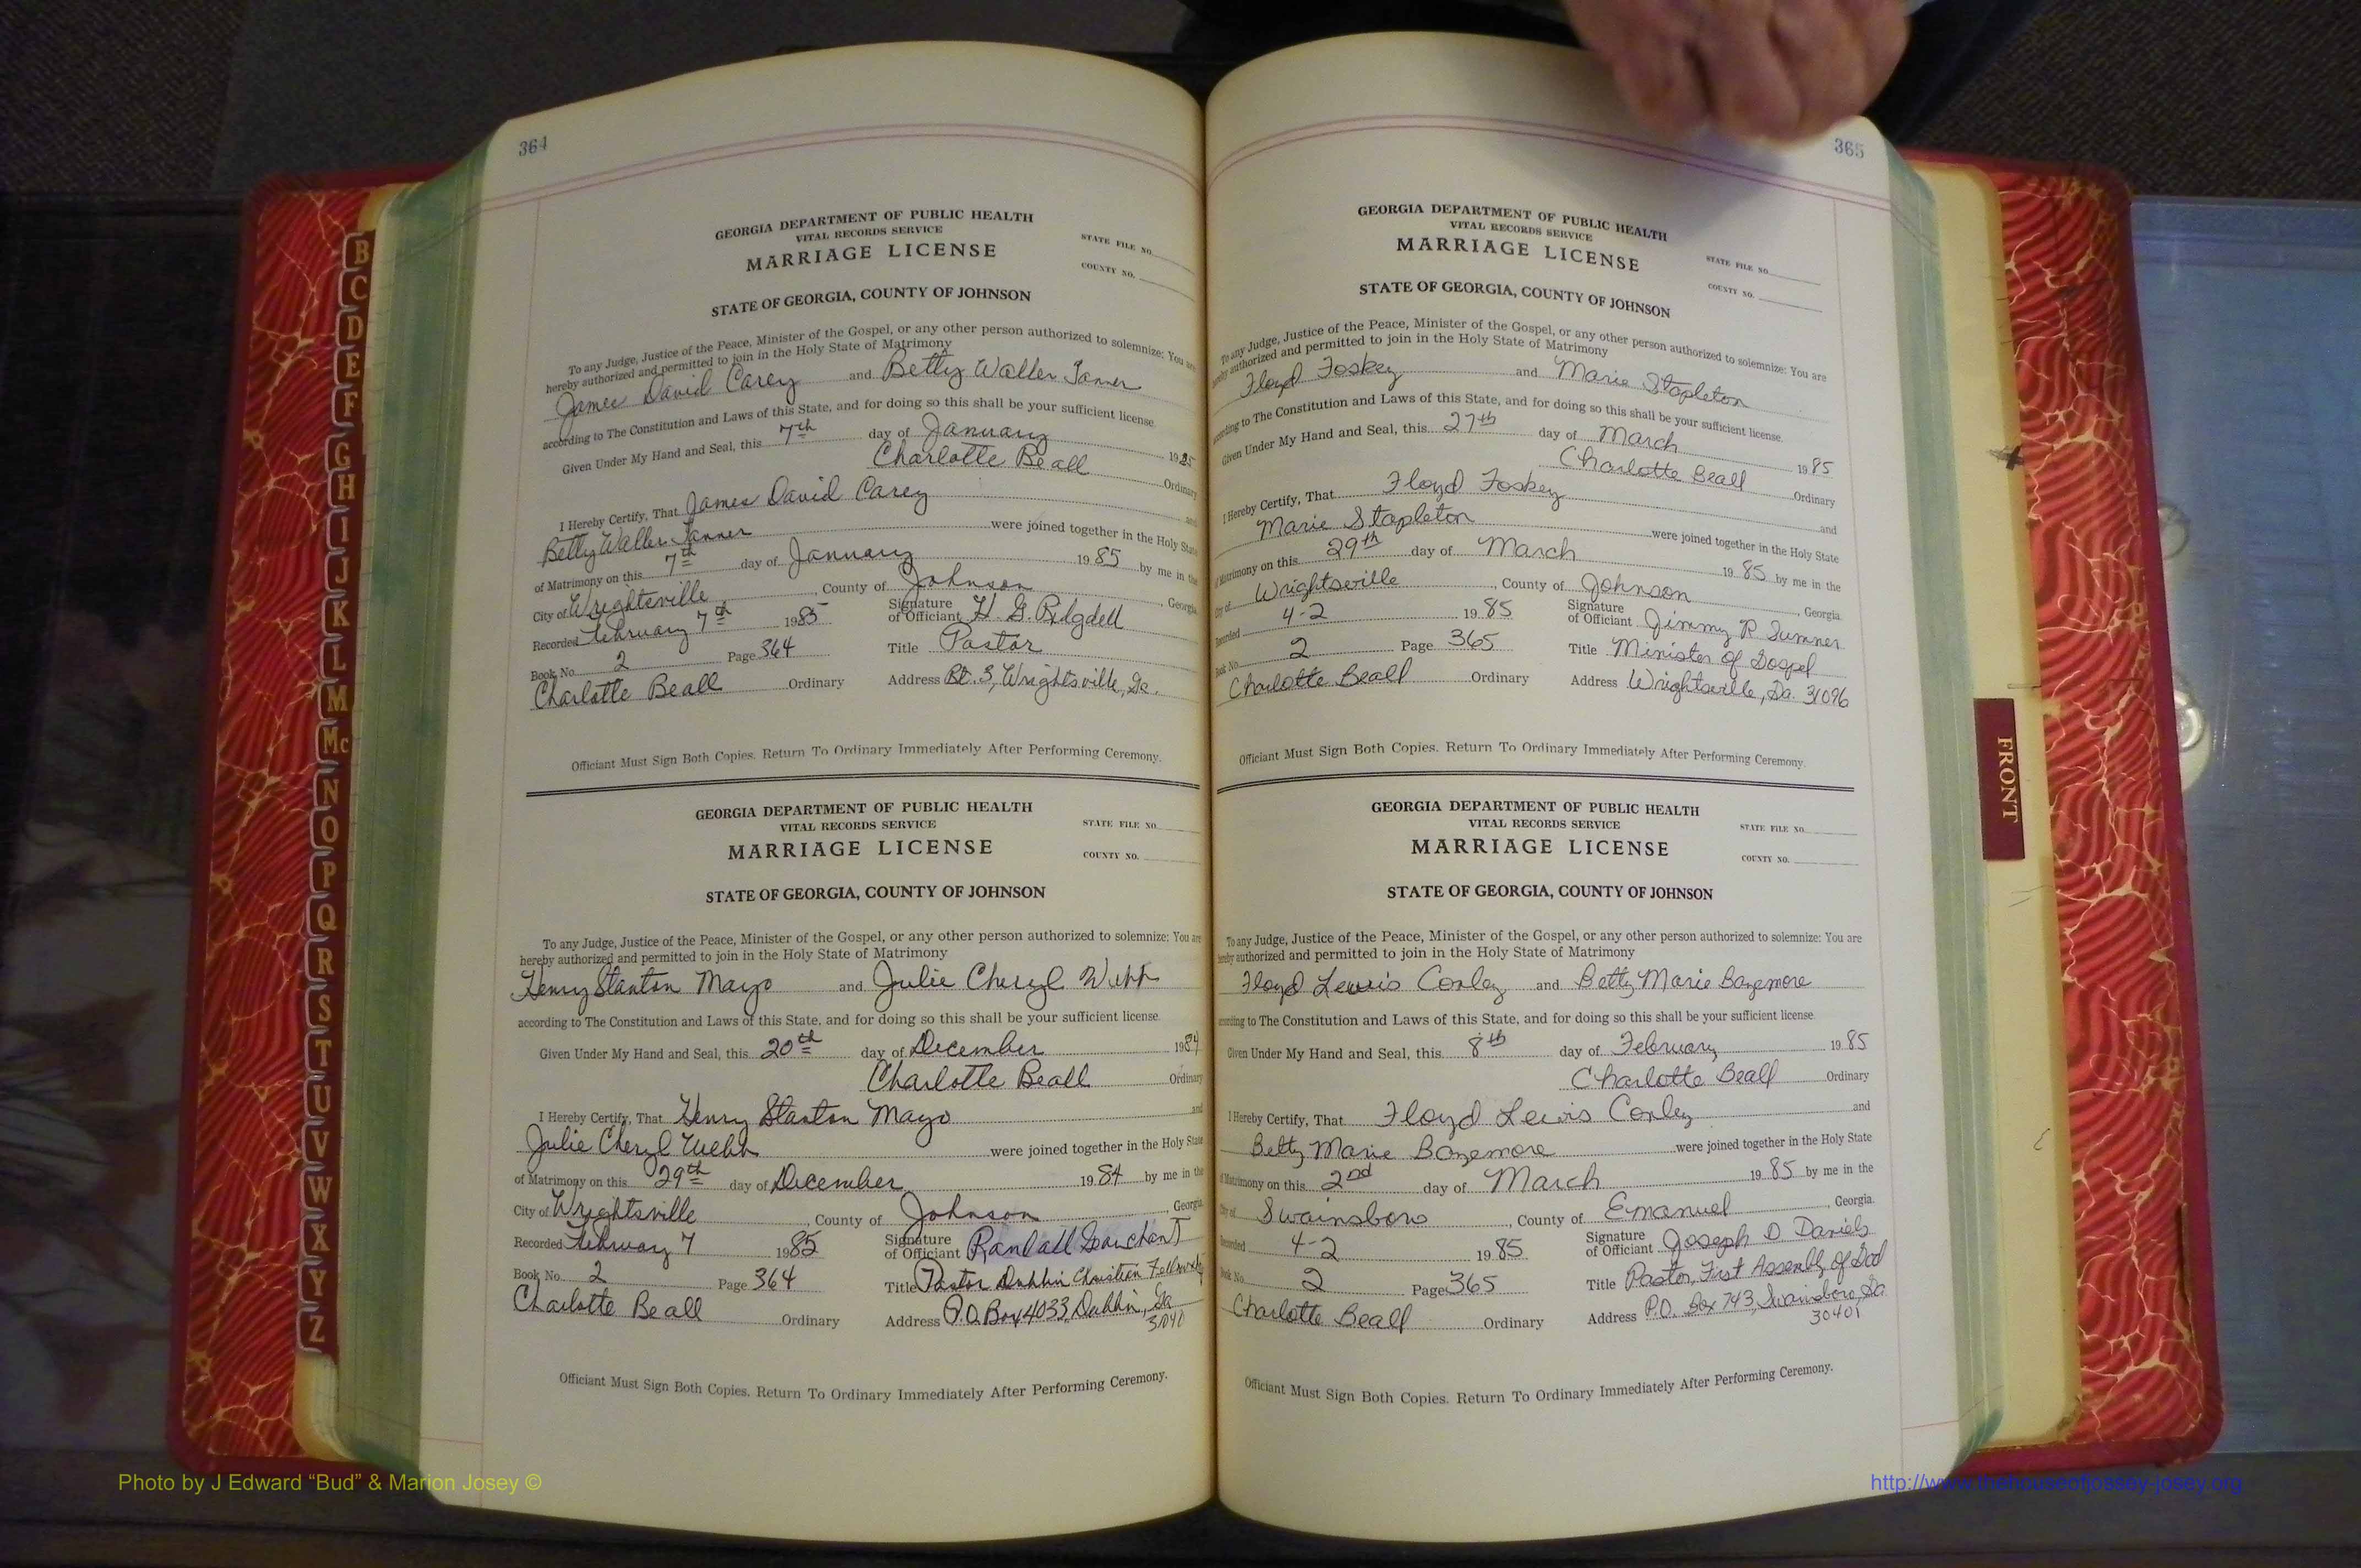 364
GEORGIA DEPARTMENT OF PUBLIC HEALTH
VITAL RECORDS SERVICE
MARRIAGE LICENSE
STATE FILE NO.
COUNTY NO.
STATE OF GEORGIA, COUNTY OF JOHNSON
To any Judge, Justice of the Peace, Minister of the Gospel, or any other person authorized to solemnize: You are
hereby authorized and permitted to join in the Holy State of Matrimony
James David Carey and Betty Waller Tanner
according to The Constitution and Laws of this State, and for doing so this shall be your sufficient license.
Given Under My Hand and Seal, this 7th day of January 1985
Charlotte Beall Ordinary
I Hereby Certify, That James David Carey and
Betty Waller Tanner were joined together in the Holy State
of Matrimony on this 7th day of January 1985 by me in the
City of Wrightsville, County of Johnson, Georgia
Recorded February 7th 1985 Signature of Officiant H. G. Ridgdell
Book No. 2 Page 364 Title Pastor
Charlotte Beall Ordinary Address Rt. 3, Wrightsville, Ga.
Officiant Must Sign Both Copies. Return To Ordinary Immediately After Performing Ceremony.
GEORGIA DEPARTMENT OF PUBLIC HEALTH
VITAL RECORDS SERVICE
MARRIAGE LICENSE
STATE FILE NO.
COUNTY NO.
STATE OF GEORGIA, COUNTY OF JOHNSON
To any Judge, Justice of the Peace, Minister of the Gospel, or any other person authorized to solemnize: You are
hereby authorized and permitted to join in the Holy State of Matrimony
Henry Stanton Mayo and Julie Cheryl Webb
according to The Constitution and Laws of this State, and for doing so this shall be your sufficient license.
Given Under My Hand and Seal, this 20th day of December 1984
Charlotte Beall Ordinary
I Hereby Certify, That Henry Stanton Mayo and
Julie Cheryl Webb were joined together in the Holy State
of Matrimony on this 29th day of December 1984 by me in the
City of Wrightsville, County of Johnson, Georgia
Recorded February 7 1985 Signature of Officiant Randall
Book No. 2 Page 364 Title Pastor Dublin Christian Fellowship
Charlotte Beall Ordinary Address P.O. Box 4033, Dublin, Ga
31040
Officiant Must Sign Both Copies. Return To Ordinary Immediately After Performing Ceremony.
365
GEORGIA DEPARTMENT OF PUBLIC HEALTH
VITAL RECORDS SERVICE
MARRIAGE LICENSE
STATE FILE NO.
COUNTY NO.
STATE OF GEORGIA, COUNTY OF JOHNSON
To any Judge, Justice of the Peace, Minister of the Gospel, or any other person authorized to solemnize: You are
hereby authorized and permitted to join in the Holy State of Matrimony
Floyd Foskey and Marie Stapleton
according to The Constitution and Laws of this State, and for doing so this shall be your sufficient license.
Given Under My Hand and Seal, this 27th day of March 1985
Charlotte Beall Ordinary
I Hereby Certify, That Floyd Foskey and
Marie Stapleton were joined together in the Holy State
of Matrimony on this 29th day of March 1985 by me in the
City of Wrightsville, County of Johnson, Georgia
Recorded 4-2 1985 Signature of Officiant Jimmy R Sumner
Book No. 2 Page 365 Title Minister of Gospel
Charlotte Beall Ordinary Address Wrightsville, Ga. 31096
Officiant Must Sign Both Copies. Return To Ordinary Immediately After Performing Ceremony.
GEORGIA DEPARTMENT OF PUBLIC HEALTH
VITAL RECORDS SERVICE
MARRIAGE LICENSE
STATE FILE NO.
COUNTY NO.
STATE OF GEORGIA, COUNTY OF JOHNSON
To any Judge, Justice of the Peace, Minister of the Gospel, or any other person authorized to solemnize: You are
hereby authorized and permitted to join in the Holy State of Matrimony
Floyd Lewis Conley and Betty Marie Bazemore
according to The Constitution and Laws of this State, and for doing so this shall be your sufficient license.
Given Under My Hand and Seal, this 8th day of February 1985
Charlotte Beall Ordinary
I Hereby Certify, That Floyd Lewis Conley and
Betty Marie Bazemore were joined together in the Holy State
of Matrimony on this 2nd day of March 1985 by me in the
City of Swainsboro, County of Emanuel, Georgia.
Recorded 4-2 1985 Signature of Officiant Joseph D Daniels
Book No. 2 Page 365 Title Pastor, First Assembly of God
Charlotte Beall Ordinary Address P.O. Box 743, Swainsboro, Ga
30401
Officiant Must Sign Both Copies. Return To Ordinary Immediately After Performing Ceremony.
B
C
D
E
F
G
H
I
J
K
L
M
Mc
N
O
P
Q
R
S
T
U
V
W
X
Y
Z
FRONT
Photo by J Edward “Bud” & Marion Josey ©
http://www.thehouseofjossey-josey.org